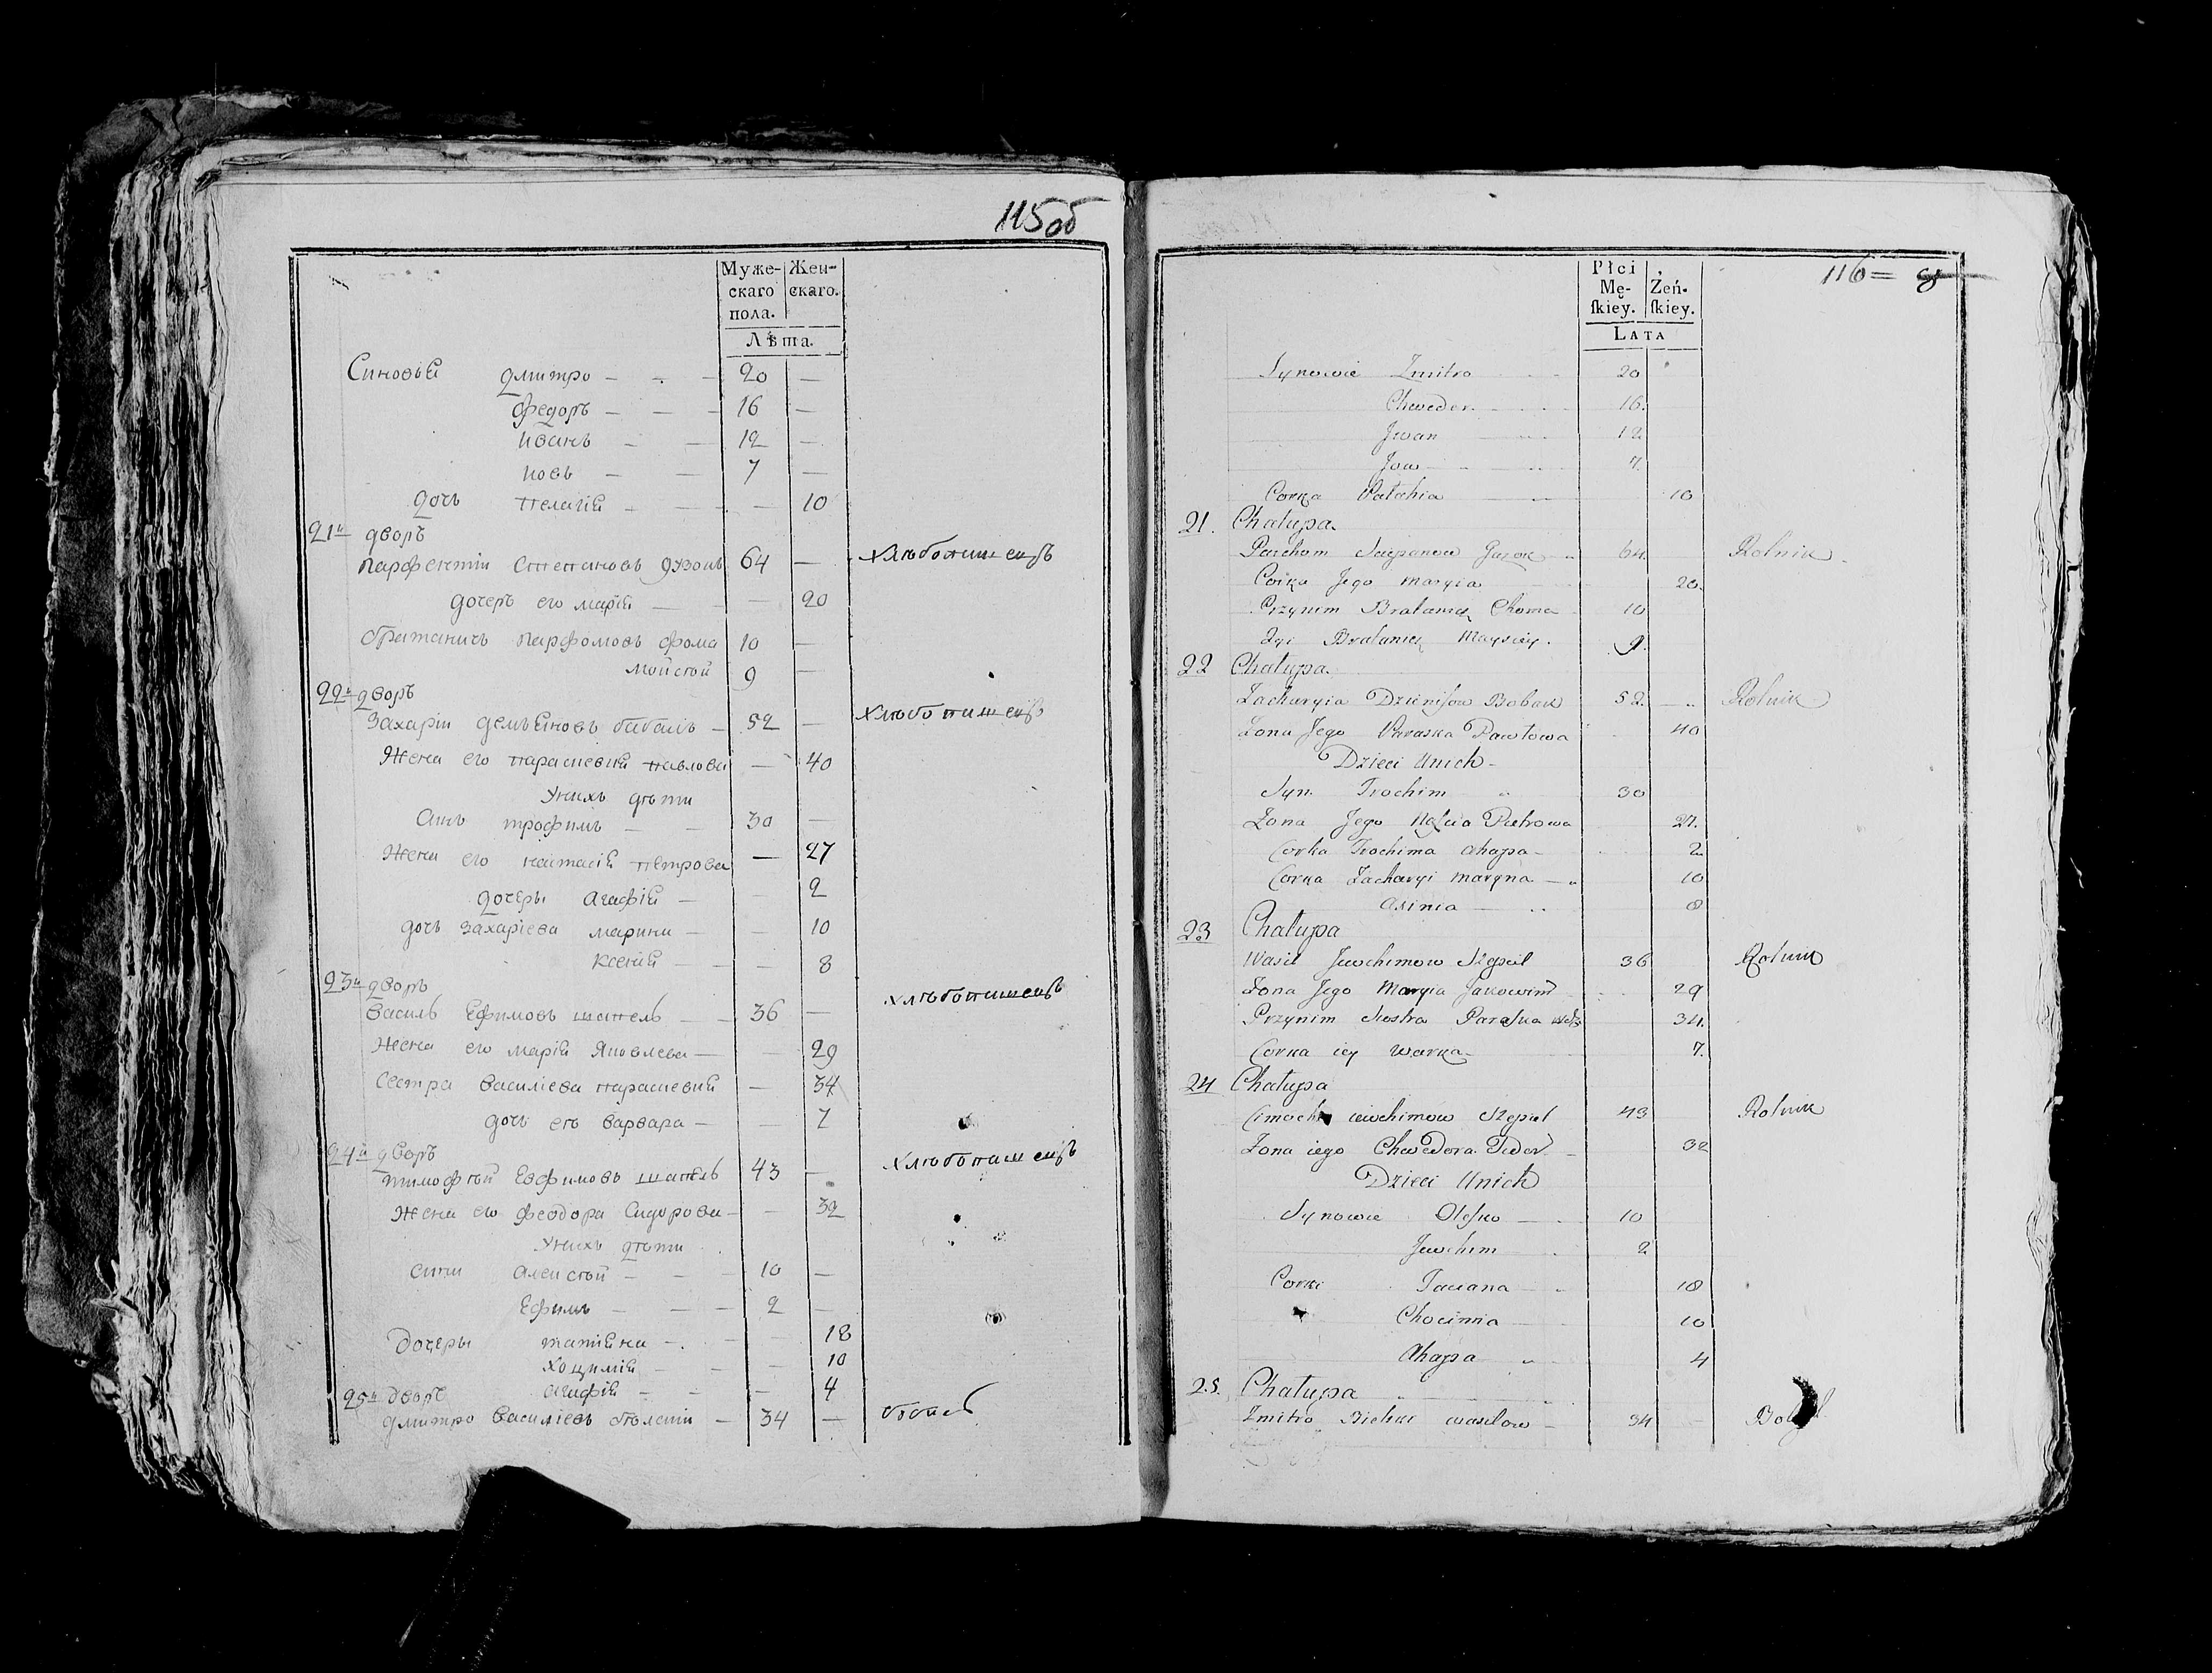 115об
Муже-
скаго
пола.
Жен-
скаго.
Лѣта.
Синовья дмитро — — — 20 —
федоръ — — — 16 —
иванъ — — 12 —
иовъ — — 7 —
дочь пелагія — — — 10
21й дворъ
парфентіи степановъ 64 — хлѣбопашецъ
дочеръ его марія — — 20
братаничъ парфомовъ фома 10 —
мойсѣй 9 —
22й дворъ
Захаріи демьяновъ бабакъ — 52 — хлѣбопашецъ
Жена его параскевия павлова — 40
Унихъ дѣти
Синъ трофимъ — — 30 —
Жена его настасія петрова — 27
дочеры агафія — — 2
дочь захаріева марина — — 10
ксенія — — 8
23й дворъ
василь Ефимовъ шапель — — 36 — хлѣбопашецъ
Жена его марія Яковлева — — 29
Сестра василіева параскевия — 34
дочь ея варвара — — 7
24й дворъ
тимофѣй Евфимовъ шапель 43 — хлѣбопашецъ
Жена его феодора Сидорова — — 32
Унихъ дѣти
сини алексѣй — — — 10 —
Ефимъ — — — 2 —
Дочеры татіяна — — 18
хоцимія — — — 10
агафія — — — 4
25й дворъ
дмитро Василіевъ — 34 —
116
Płci
Mę-
skiey.
Żeń-
skiey.
LATA
Synowie Zmitro 20
Chweder 16.
Jwan 12
Jow 7.
Corka Pałahia 10
21. Chałupa.
Parchom Sciepanow 64. Rolnik.
Corka Jego Maryia 20.
Przynim Brataniec Choma 10
Brataniec Maysiey. 9.
22 Chałupa.
Zacharyia Dzienisow Bobak 52. Rolnik
Zona Jego Paraska Pawłowa 40
Dzieci Unich
Syn Trochim 30
Zona Jego Nascia Pietrowa 27.
Corka Trochima Ahapa 2
Corka Zacharyi Maryna 10
Axinia 8
23 Chałupa
Wasil Jewchimow Szepiel 36 Rolnik
Zona Jego Maryia Jakowina 29
Przynim Siostra Paraska 34.
Corka iey Warka 7.
24 Chałupa
Cimoch Jewchimow Szepiel 43 Rolnik
Zona iego Chwedora 32
Dzieci Unich
Synowie Olesko 10
Jewchim 2
Corki Taciana 18
Chocimia 10
Ahapa 4
25. Chałupa
Zmitro Bielski wasilow 34